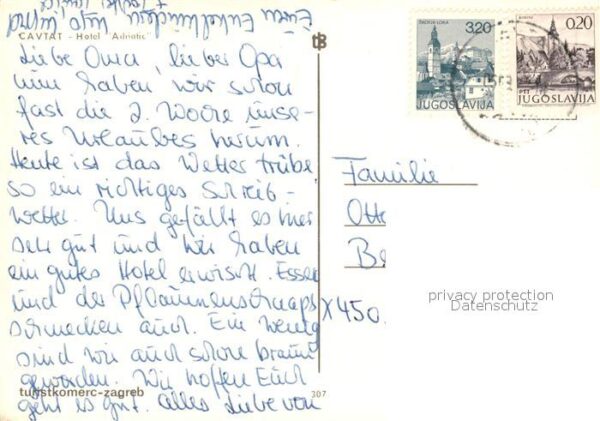 Euren Enkelkindern
CAVTAT - Hotel "Adriatic"
Liebe Oma, lieber Opa
nun haben wir schon
fast die 2. Woche unse-
res Urlaubes herum.
Heute ist das Wetter trübe
so ein richtiges Schreib-
wetter. Uns gefällt es hier
sehr gut und wir haben
ein gutes Hotel erwischt. Essen
und der Pflaumenschnaps
schmecken auch. Ein wenig
sind wir auch schon braun
geworden. Wir hoffen Euch
turistkomerc-zagreb
307
geht es gut. Alles Liebe von
ŠKOFJA LOKA
3.20
JUGOSLAVIJA
0.20
PTT
JUGOSLAVIJA
Familie
Otto
Be
X450.
privacy protection
Datenschutz